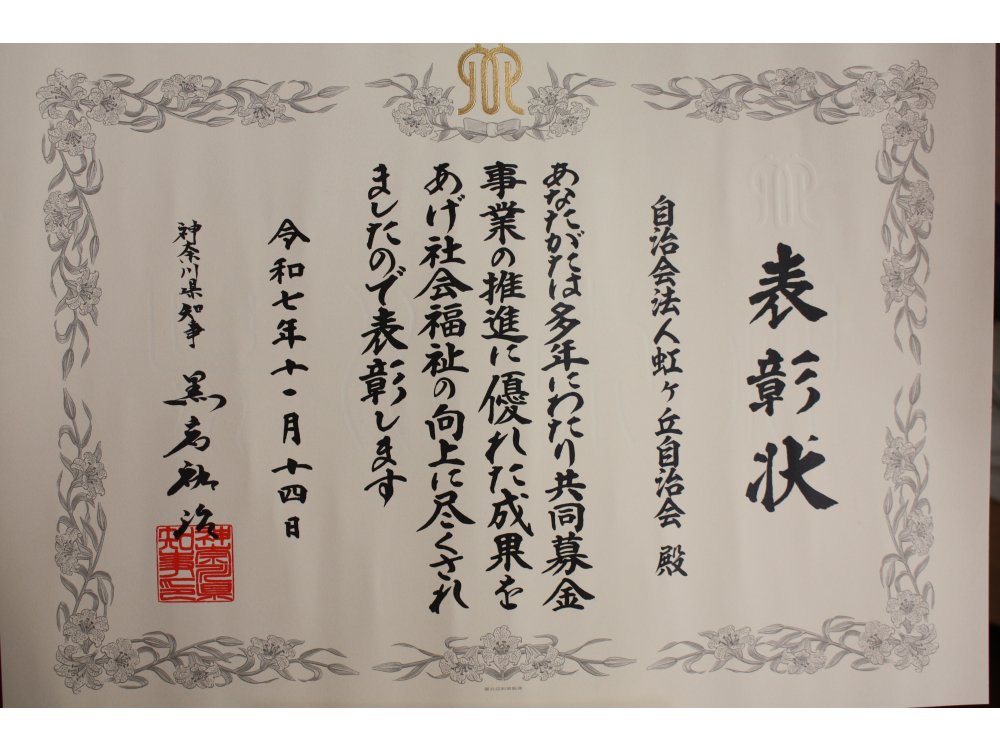 表彰状
自治会法人虹ヶ丘自治会 殿
あなたがたは多年にわたり共同募金
事業の推進に優れた成果を
あげ社会福祉の向上に尽くされ
ましたので表彰します
令和七年十一月十四日
神奈川県知事 黒岩祐治
神奈川県
知事之印